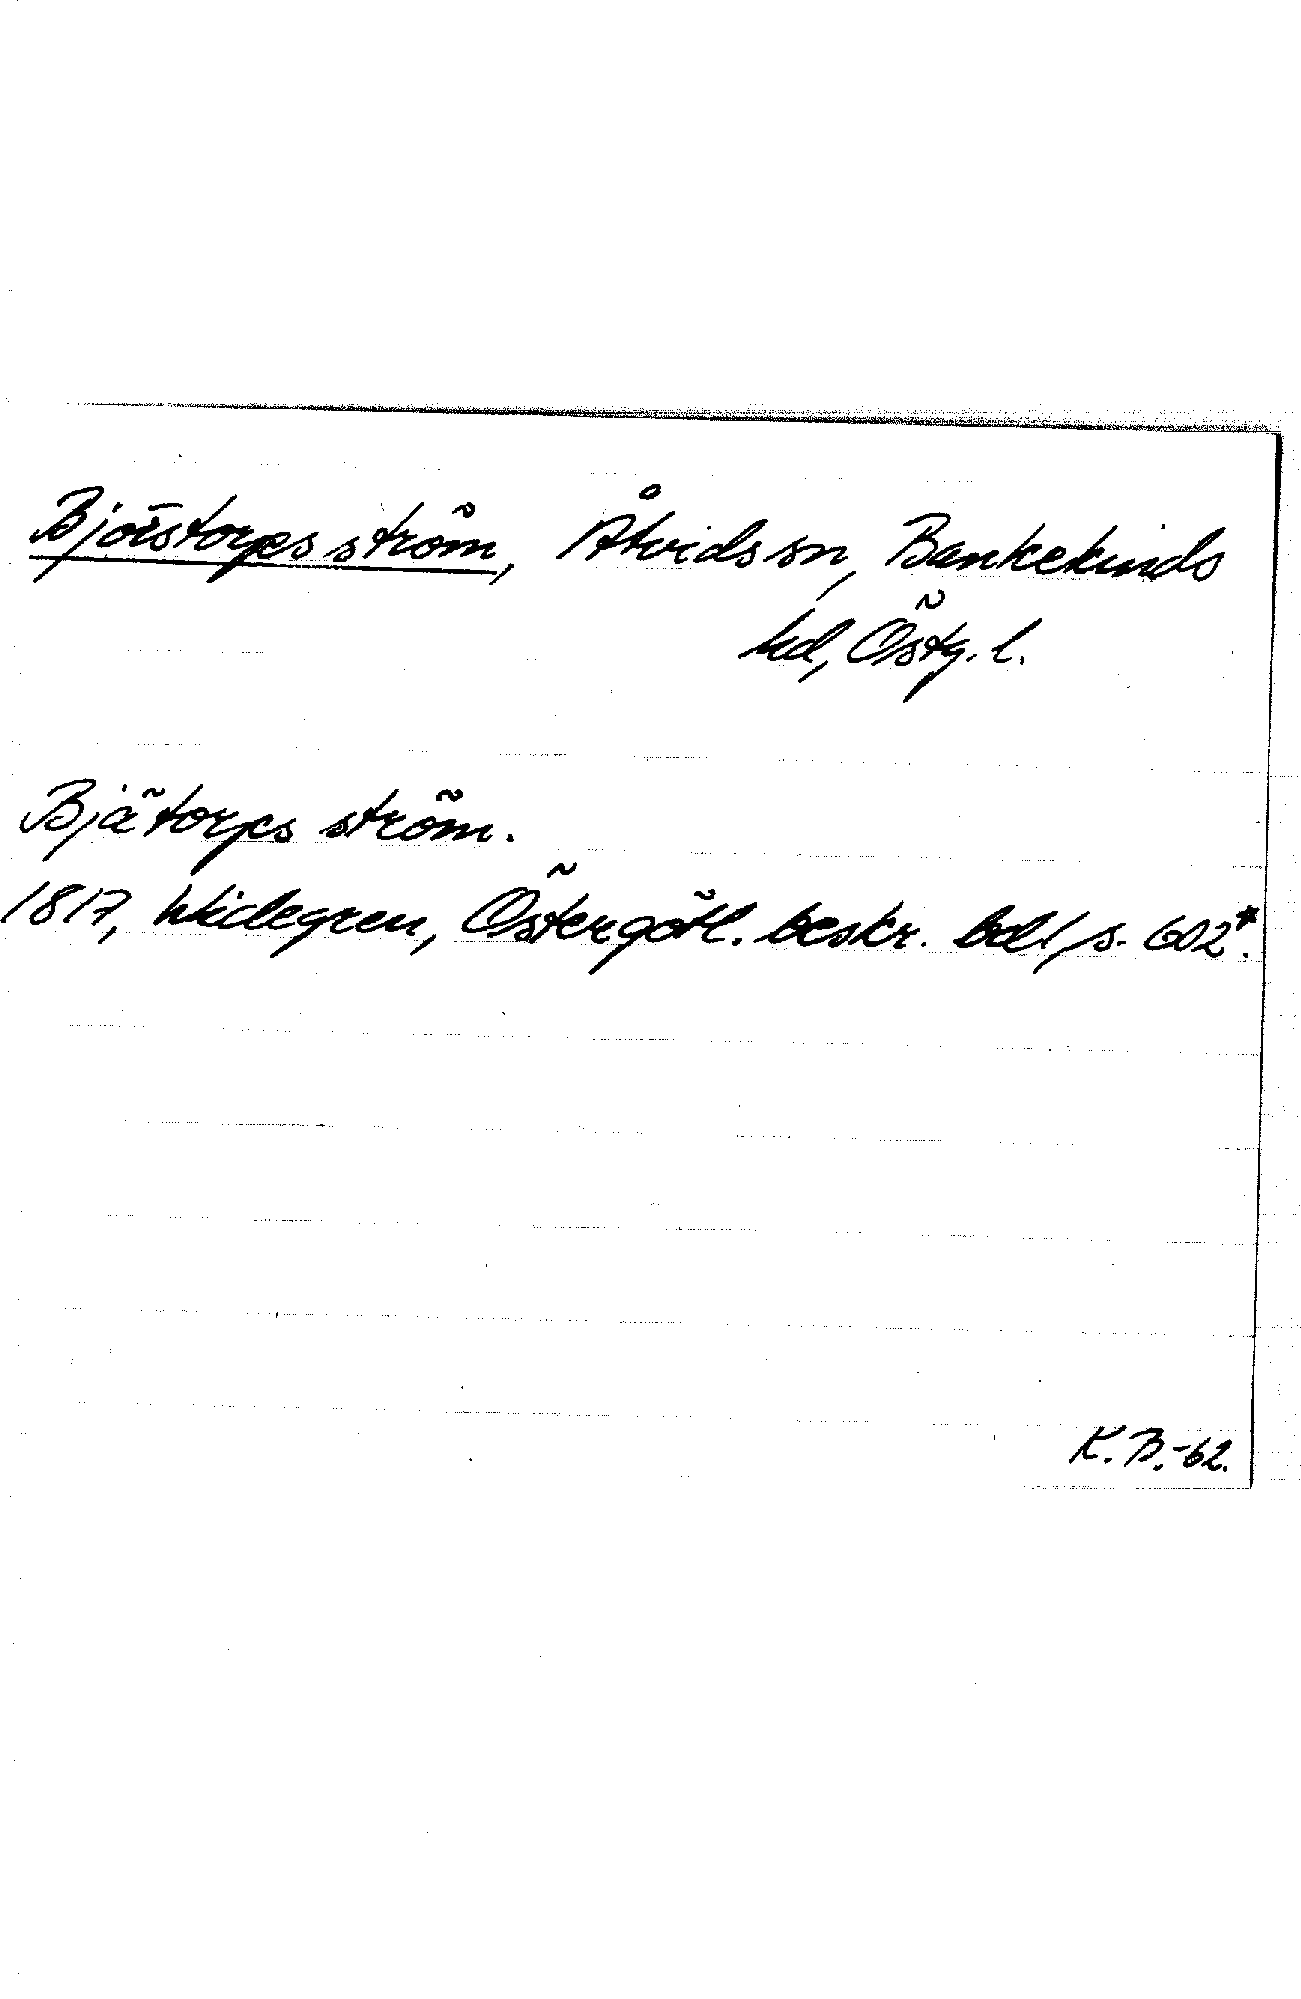 Björstorps ström, Åtvids sn, Bankekinds
hd, Östg. l.
Bjätorps ström.
1817, Widegren, Östergötl. beskr. bd I, s. 602*.
K. B.-62.